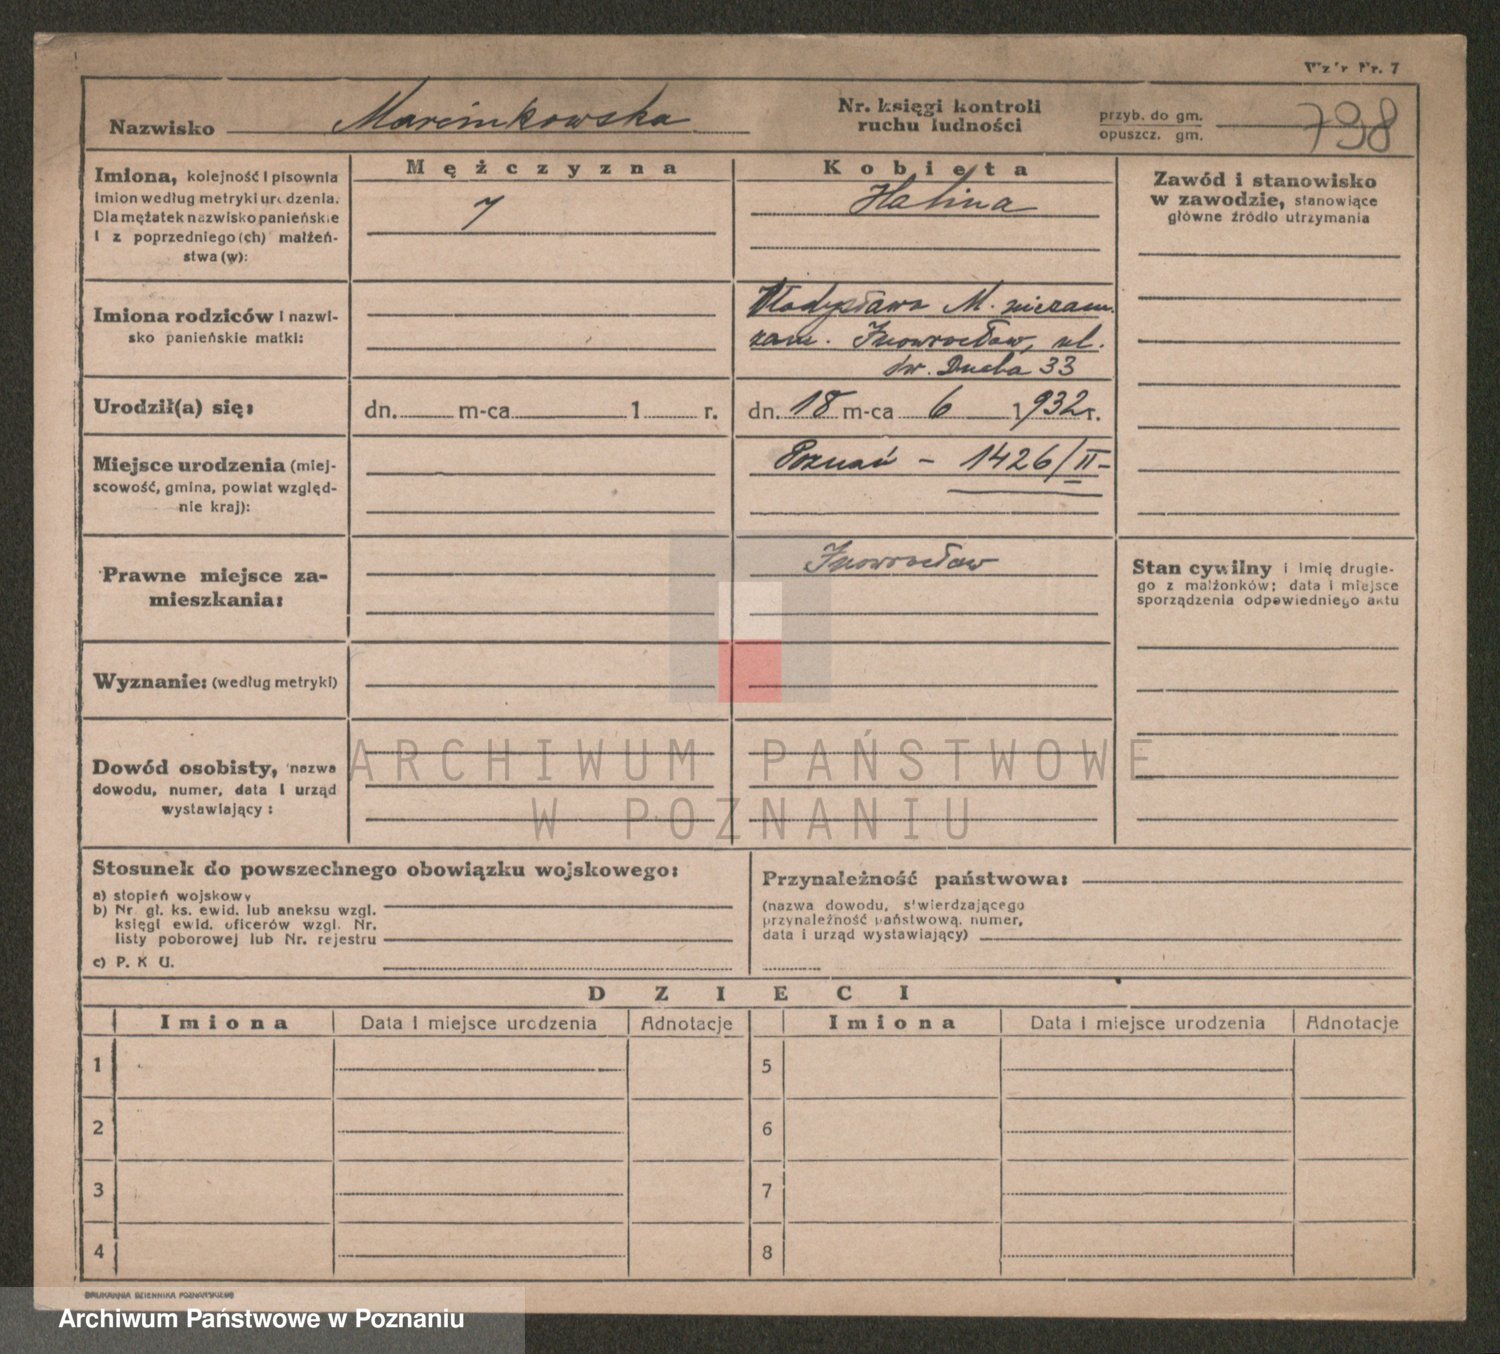 Wzór Nr. 7
Nazwisko Marcinkowska
Nr. księgi kontroli
ruchu ludności
przyb. do gm.
opuszcz. gm.
798
Imiona, kolejność i pisownia
imion według metryki urodzenia.
Dla mężatek nazwisko panieńskie
i z poprzedniego(ch) małżeń-
stwa(w):
Mężczyzna
Kobieta
Halina
Zawód i stanowisko
w zawodzie, stanowiące
główne źródło utrzymania
Imiona rodziców i nazwi-
sko panieńskie matki:
Władysława M. niezam.
zam. Inowrocław, ul.
św. Ducha 33
Urodził(a) się:
dn. m-ca 1 r.
dn. 18 m-ca 6 1932 r.
Miejsce urodzenia (miej-
scowość, gmina, powiat względ-
nie kraj):
Poznań - 1426/II-
Prawne miejsce za-
mieszkania:
Inowrocław
Stan cywilny i imię drugie-
go z małżonków; data i miejsce
sporządzenia odpowiedniego aktu
Wyznanie: (według metryki)
Dowód osobisty, nazwa
dowodu, numer, data i urząd
wystawiający:
ARCHIWUM PAŃSTWOWE
W POZNANIU
Stosunek do powszechnego obowiązku wojskowego:
a) stopień wojskowy
b) Nr. gł. ks. ewid. lub aneksu wzgl.
księgi ewid. oficerów wzgl. Nr.
listy poborowej lub Nr. rejestru
c) P. K U.
Przynależność państwowa:
(nazwa dowodu, stwierdzającego
przynależność państwową, numer,
data i urząd wystawiający)
DZIECI
Imiona Data i miejsce urodzenia Adnotacje Imiona Data i miejsce urodzenia Adnotacje
1 5
2 6
3 7
4 8
DRUKARNIA DZIENNIKA POZNAŃSKIEGO
Archiwum Państwowe w Poznaniu